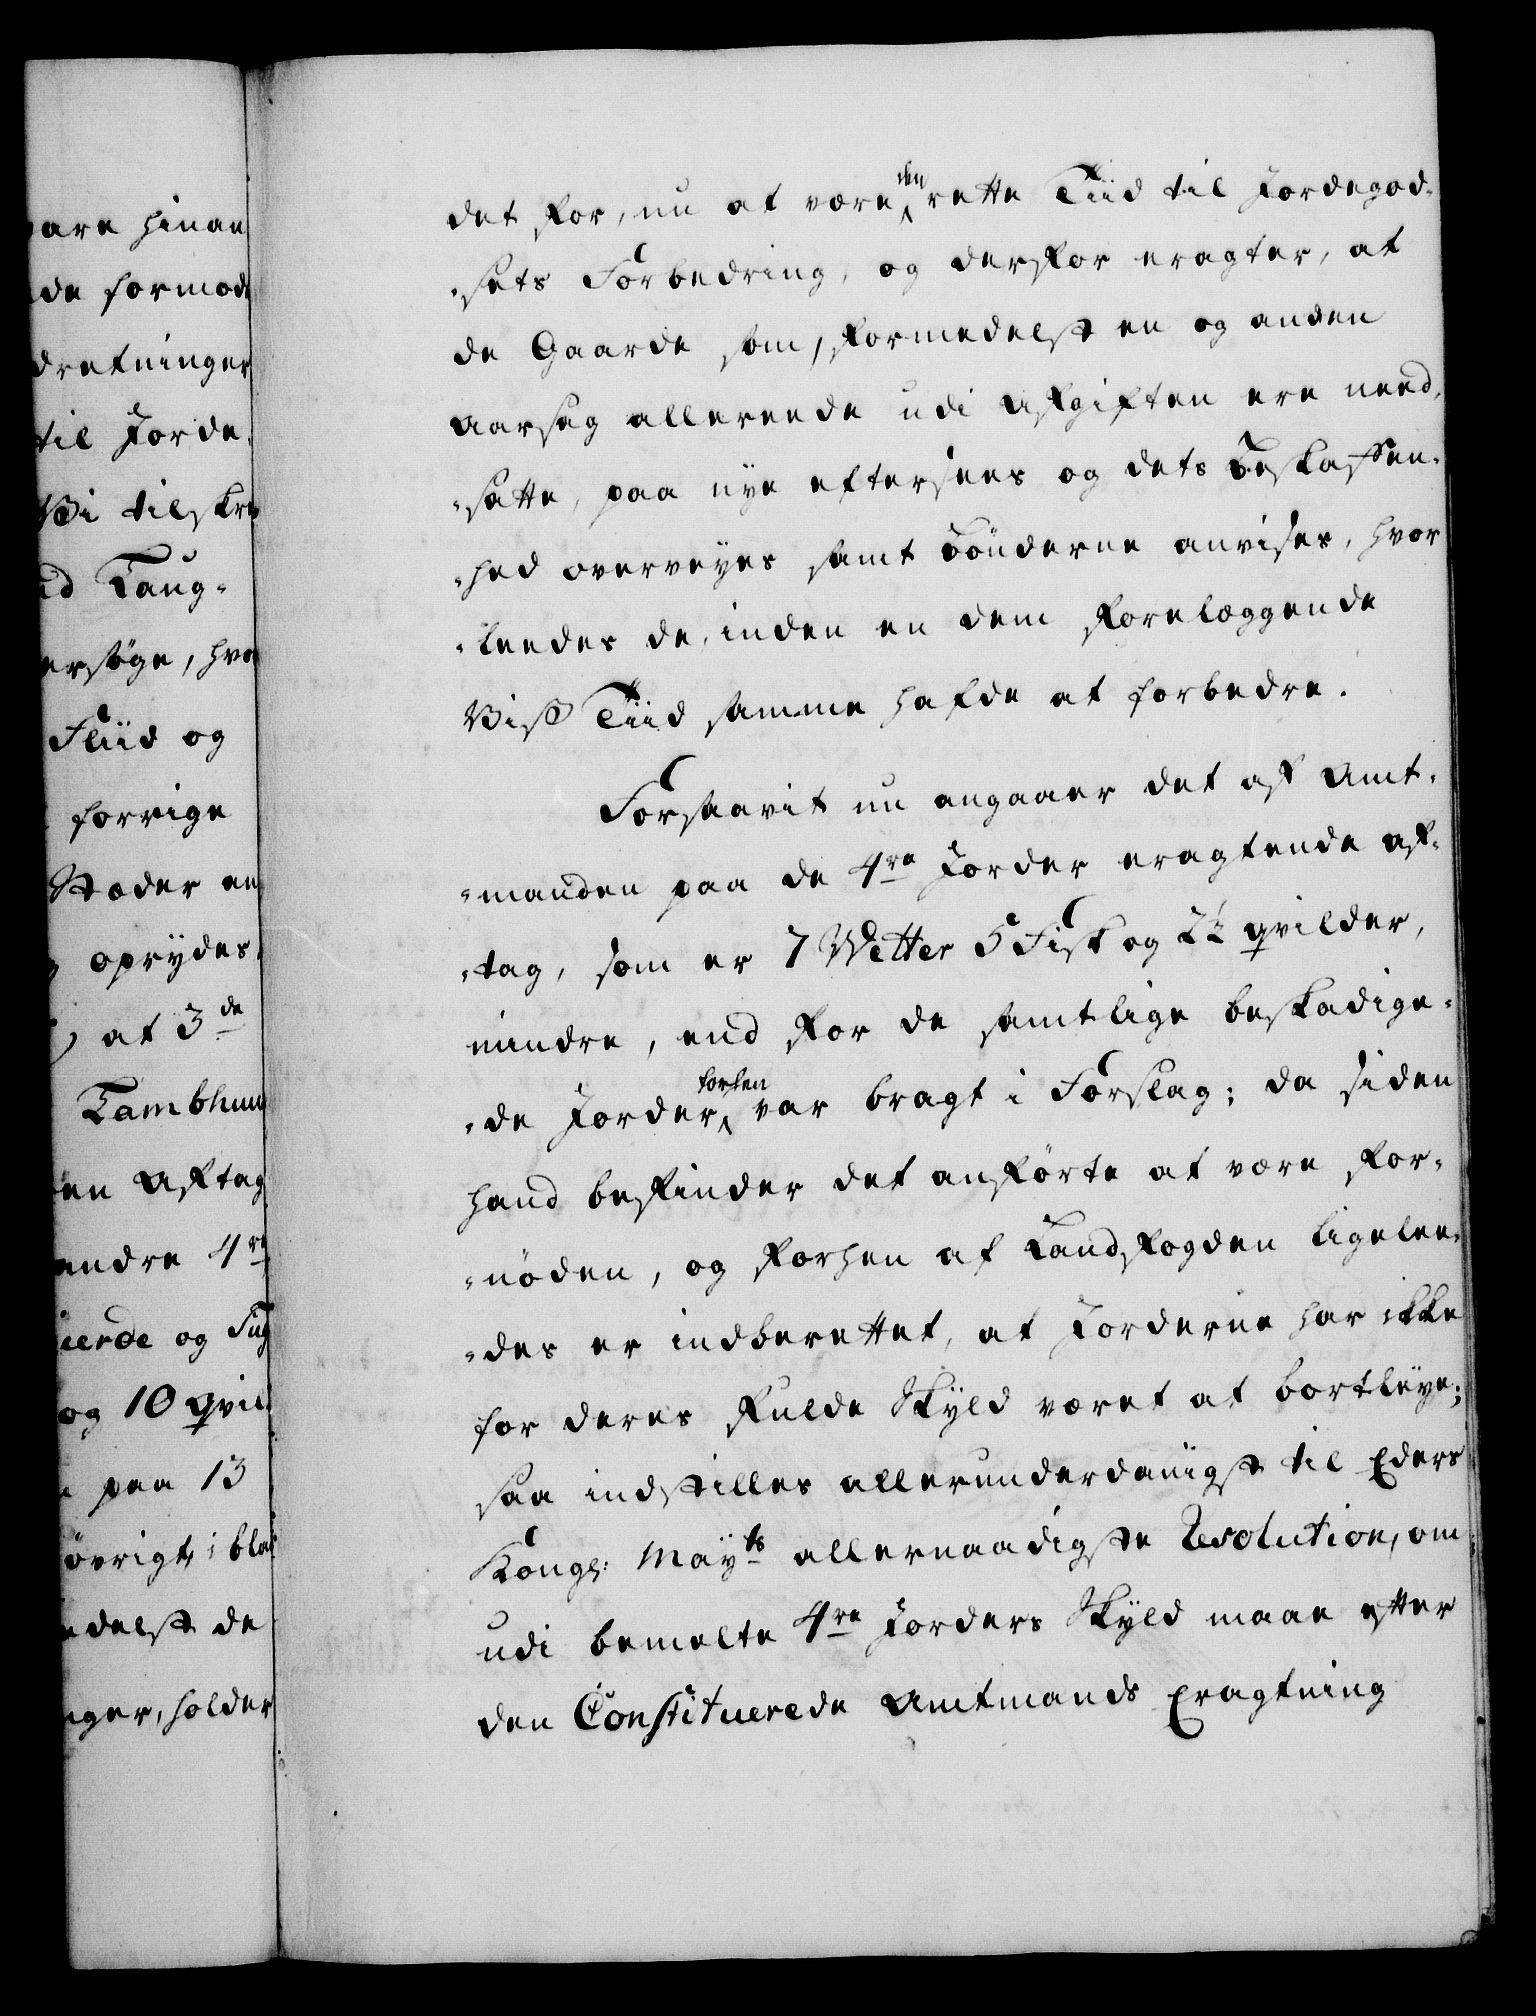 pare hinan
de formod
dretninger
til Jorde-
Vi tilskre
ed Laug-
ersøge, hvo
Fliid og
forrige
Stæder en
oprydes,
at 3de
Lambhuu
en Aftag
endre 4re
og 10 qvil
paa 13
øvrigt, i bla
edelst de
nger, holder
det for, nu at være den rette Tiid til Jordegod-
-sets Forbedring, og derfor eragter, at
de Gaarde som, formedelst en og anden
Aarsag allereede udi Afgiften ere need-
-satte, paa nye eftersees og dets Beskaffen-
-hed overveyes samt Bönderne anvises, hvor
-leedes de, inden en dem forelæggende
Viss Tiid samme hafde at forbedre.
Forsaavit nu angaaer det af Amt-
-manden paa de 4re Jorder eragtende af-
-tag, som er 7 Vetter 5 Fisk og 2½ qvilder,
mindre, end for de samtlige beskadige-
-de Jorder forhen var bragt i Forslag; da siden
hand befinder det anförte at være for-
-nöden, og forhen af Landfogden ligelee-
-des er indberettet, at Jorderne har ikke
for deres fulde Skyld været at bortleye;
saa indstilles allerunderdanigst til Eders
Kongl: Mayts allernaadigste Resolution, om
udi bemelte 4re Jorders Skyld maae efter
den Constituerede Amtmands Eragtning